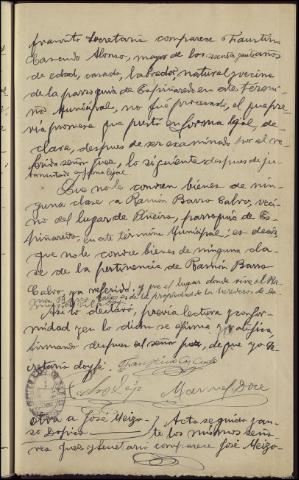 Secretario comparece Faustino
Cancudo Alonso, mayor de
de edad, casado, labrador, natural y vecino
de la parroquia de Espiñaredo en este Termi-
no Municipal, no fué procesado, el que pre-
via promesa que prestó en forma legal, de-
clara, despues de ser examinado por el re-
ferido señor Juez, lo siguiente despues de ju-
Que no le conocen bienes de nin-
guna clase a Ramón Barro Calvo, veci-
no del lugar de Piñeiro, parroquia de Es-
piñaredo, en este término Municipal; es decir
que no le conoce bienes de ninguna cla-
se de la pertinencia de Ramón Barro
Calvo, ya referido, y que el lugar donde vive el Ra-
Así lo declaró, previa lectura y confor-
midad y en lo dicho se afirma y ratifica
firmando despues el señor Juez, de que yo Se-
cretario doy fé.
Manuel
Otra a José Meizo-
so
Acto seguido y an-
te los mismos seño-
res Juez y Secretario comparece José Meizo-